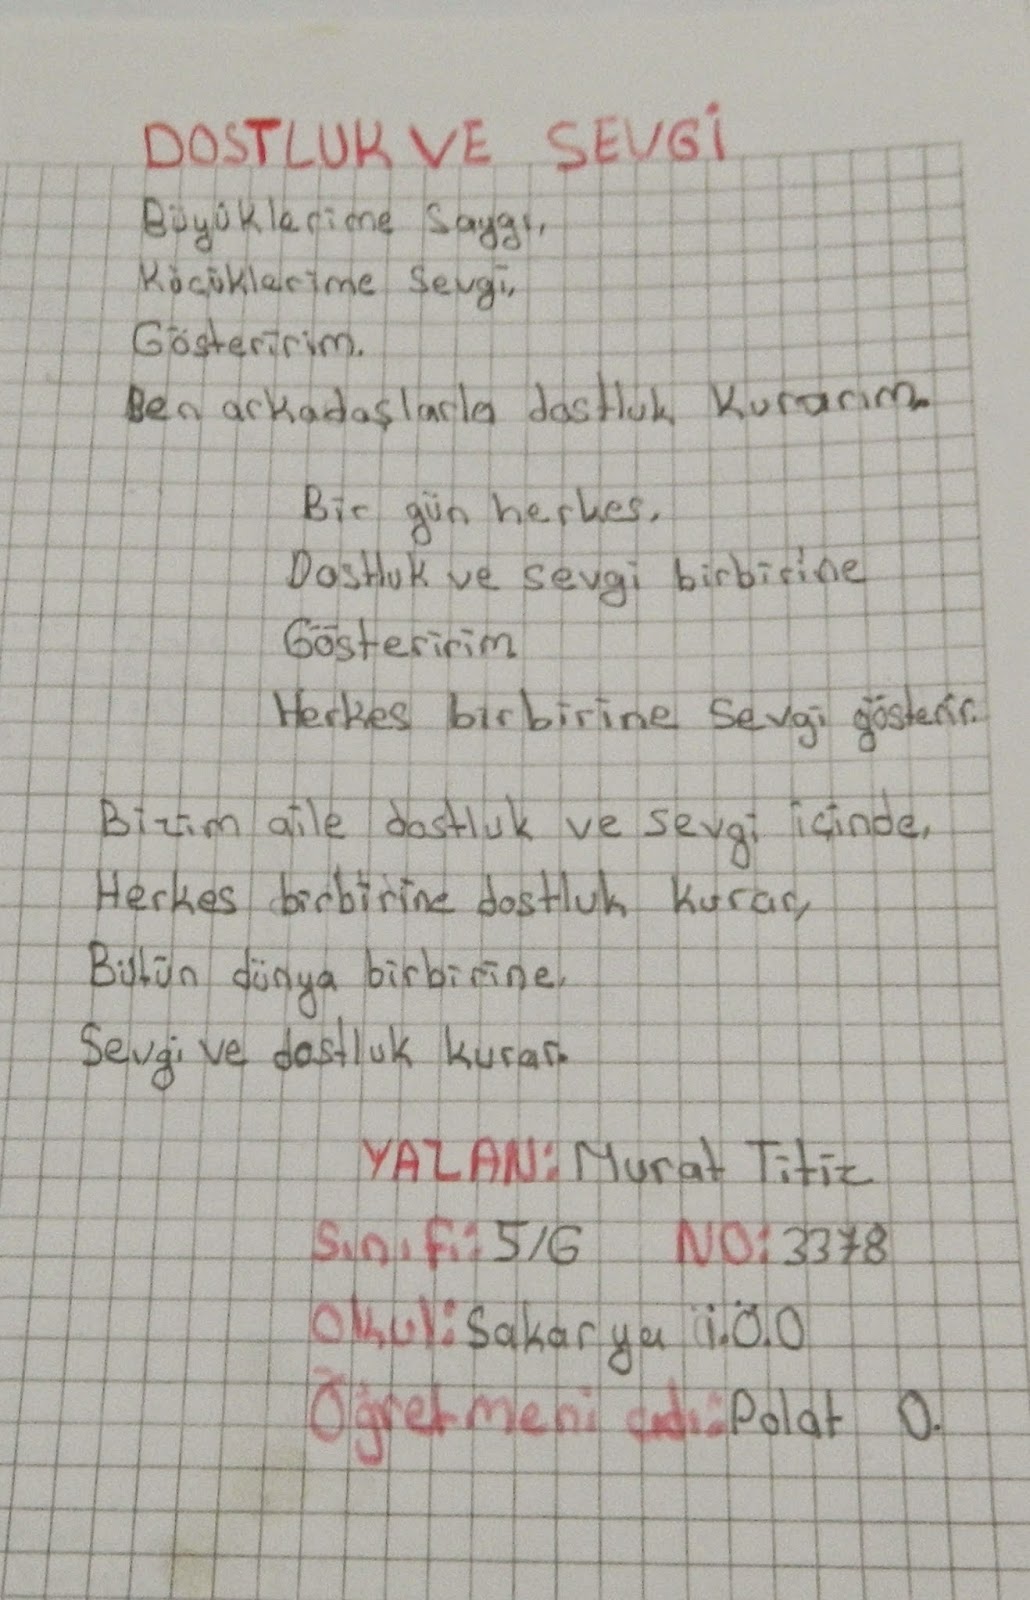 DOSTLUK VE SEVGİ
Büyüklerime Saygı,
Küçüklerime Sevgi,
Gösteririm.
Ben arkadaşlarla dostluk kurarım.
Bir gün herkes,
Dostluk ve sevgi birbirine
Gösteririm
Herkes birbirine sevgi gösterir.
Bizim aile dostluk ve sevgi içinde,
Herkes birbirine dostluk kurar,
Bütün dünya birbirine,
Sevgi ve dostluk kurar.
YAZAN: Murat Titiz
Sınıfı: 5/G NO: 3378
Okul: Sakarya İ.Ö.O
Öğretmeni adı: Polat O.